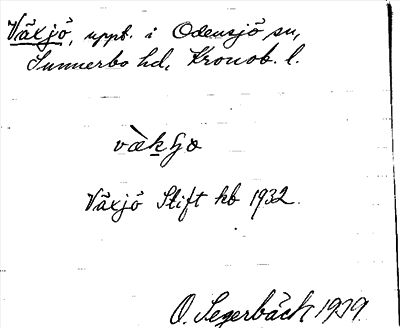 Växjö, uppt. i Odensjö sn,
Sunnerbo hd, Kronob. l.
Växjö Stift hb 1932.
O. Segerbäck 1939